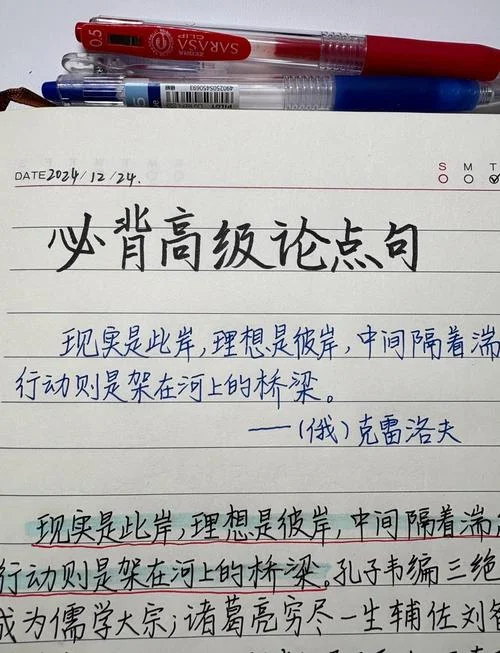 0.5 SARASA CLIP
4902505450693
DATE 2024/12/24.
S M T
必背高级论点句
现实是此岸,理想是彼岸,中间隔着湍
行动则是架在河上的桥梁。
——(俄)克雷洛夫
现实是此岸,理想是彼岸,中间隔着湍
行动则是架在河上的桥梁。孔子韦编三绝
成为儒学大宗;诸葛亮穷尽一生辅佐刘